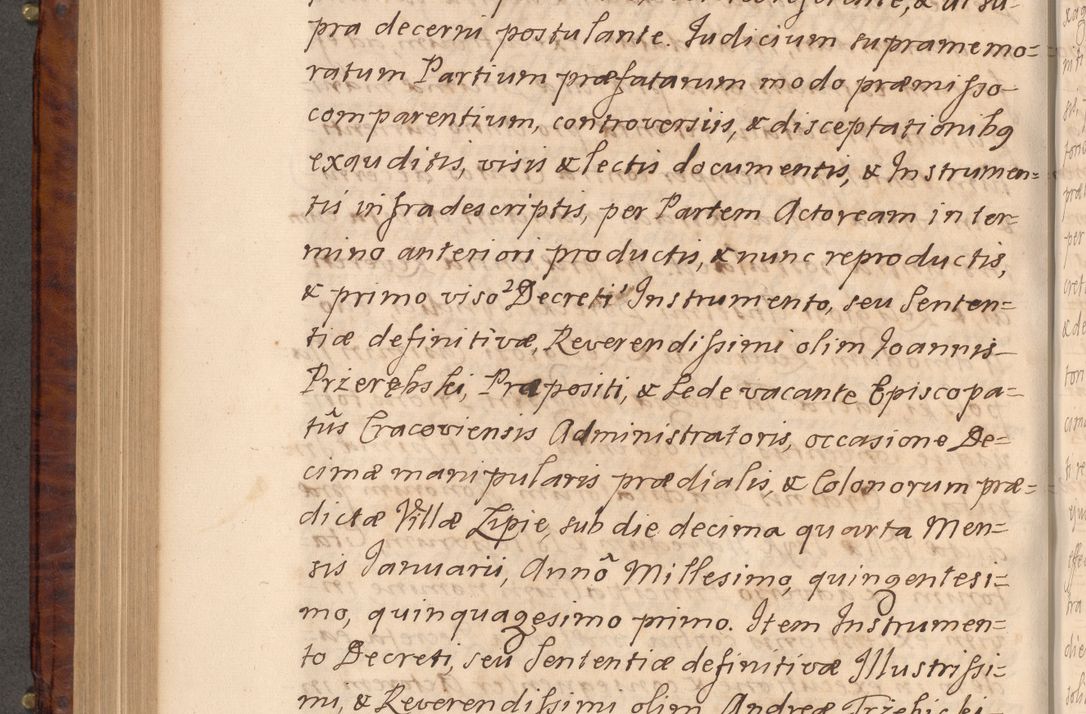 pra decerni postulante. Iudicium supramemo=
ratum Partium præfatarum modo præmisso
comparentium, controversiis, & disceptationibꝯ
exauditis, visis & lectis documentis, & Instrumen=
tis infradescriptis, per Partem Actoream in ter=
mino anteriori productis, & nunc reproductis,
& primo viso² Decreti¹ Instrumento, seu Senten=
tiæ definitivæ, Reverendissimi olim Ioannis
Przerębski, Præpositi, & Sede vacante Episcopa=
tûs Cracoviensis Administratoris, occasione De=
cimæ manipularis prædialis, & Colonorum præ=
dictæ Villæ Lipie, sub die decima quarta Men=
sis Ianuarii, Annô Millesimo, quingentesi=
mo, quinquagesimo primo. Item Instrumen=
to Decreti, seu Sententiæ definitivæ Illustrissi=
mi, & Reverendissimi olim Andreæ Trzebicki